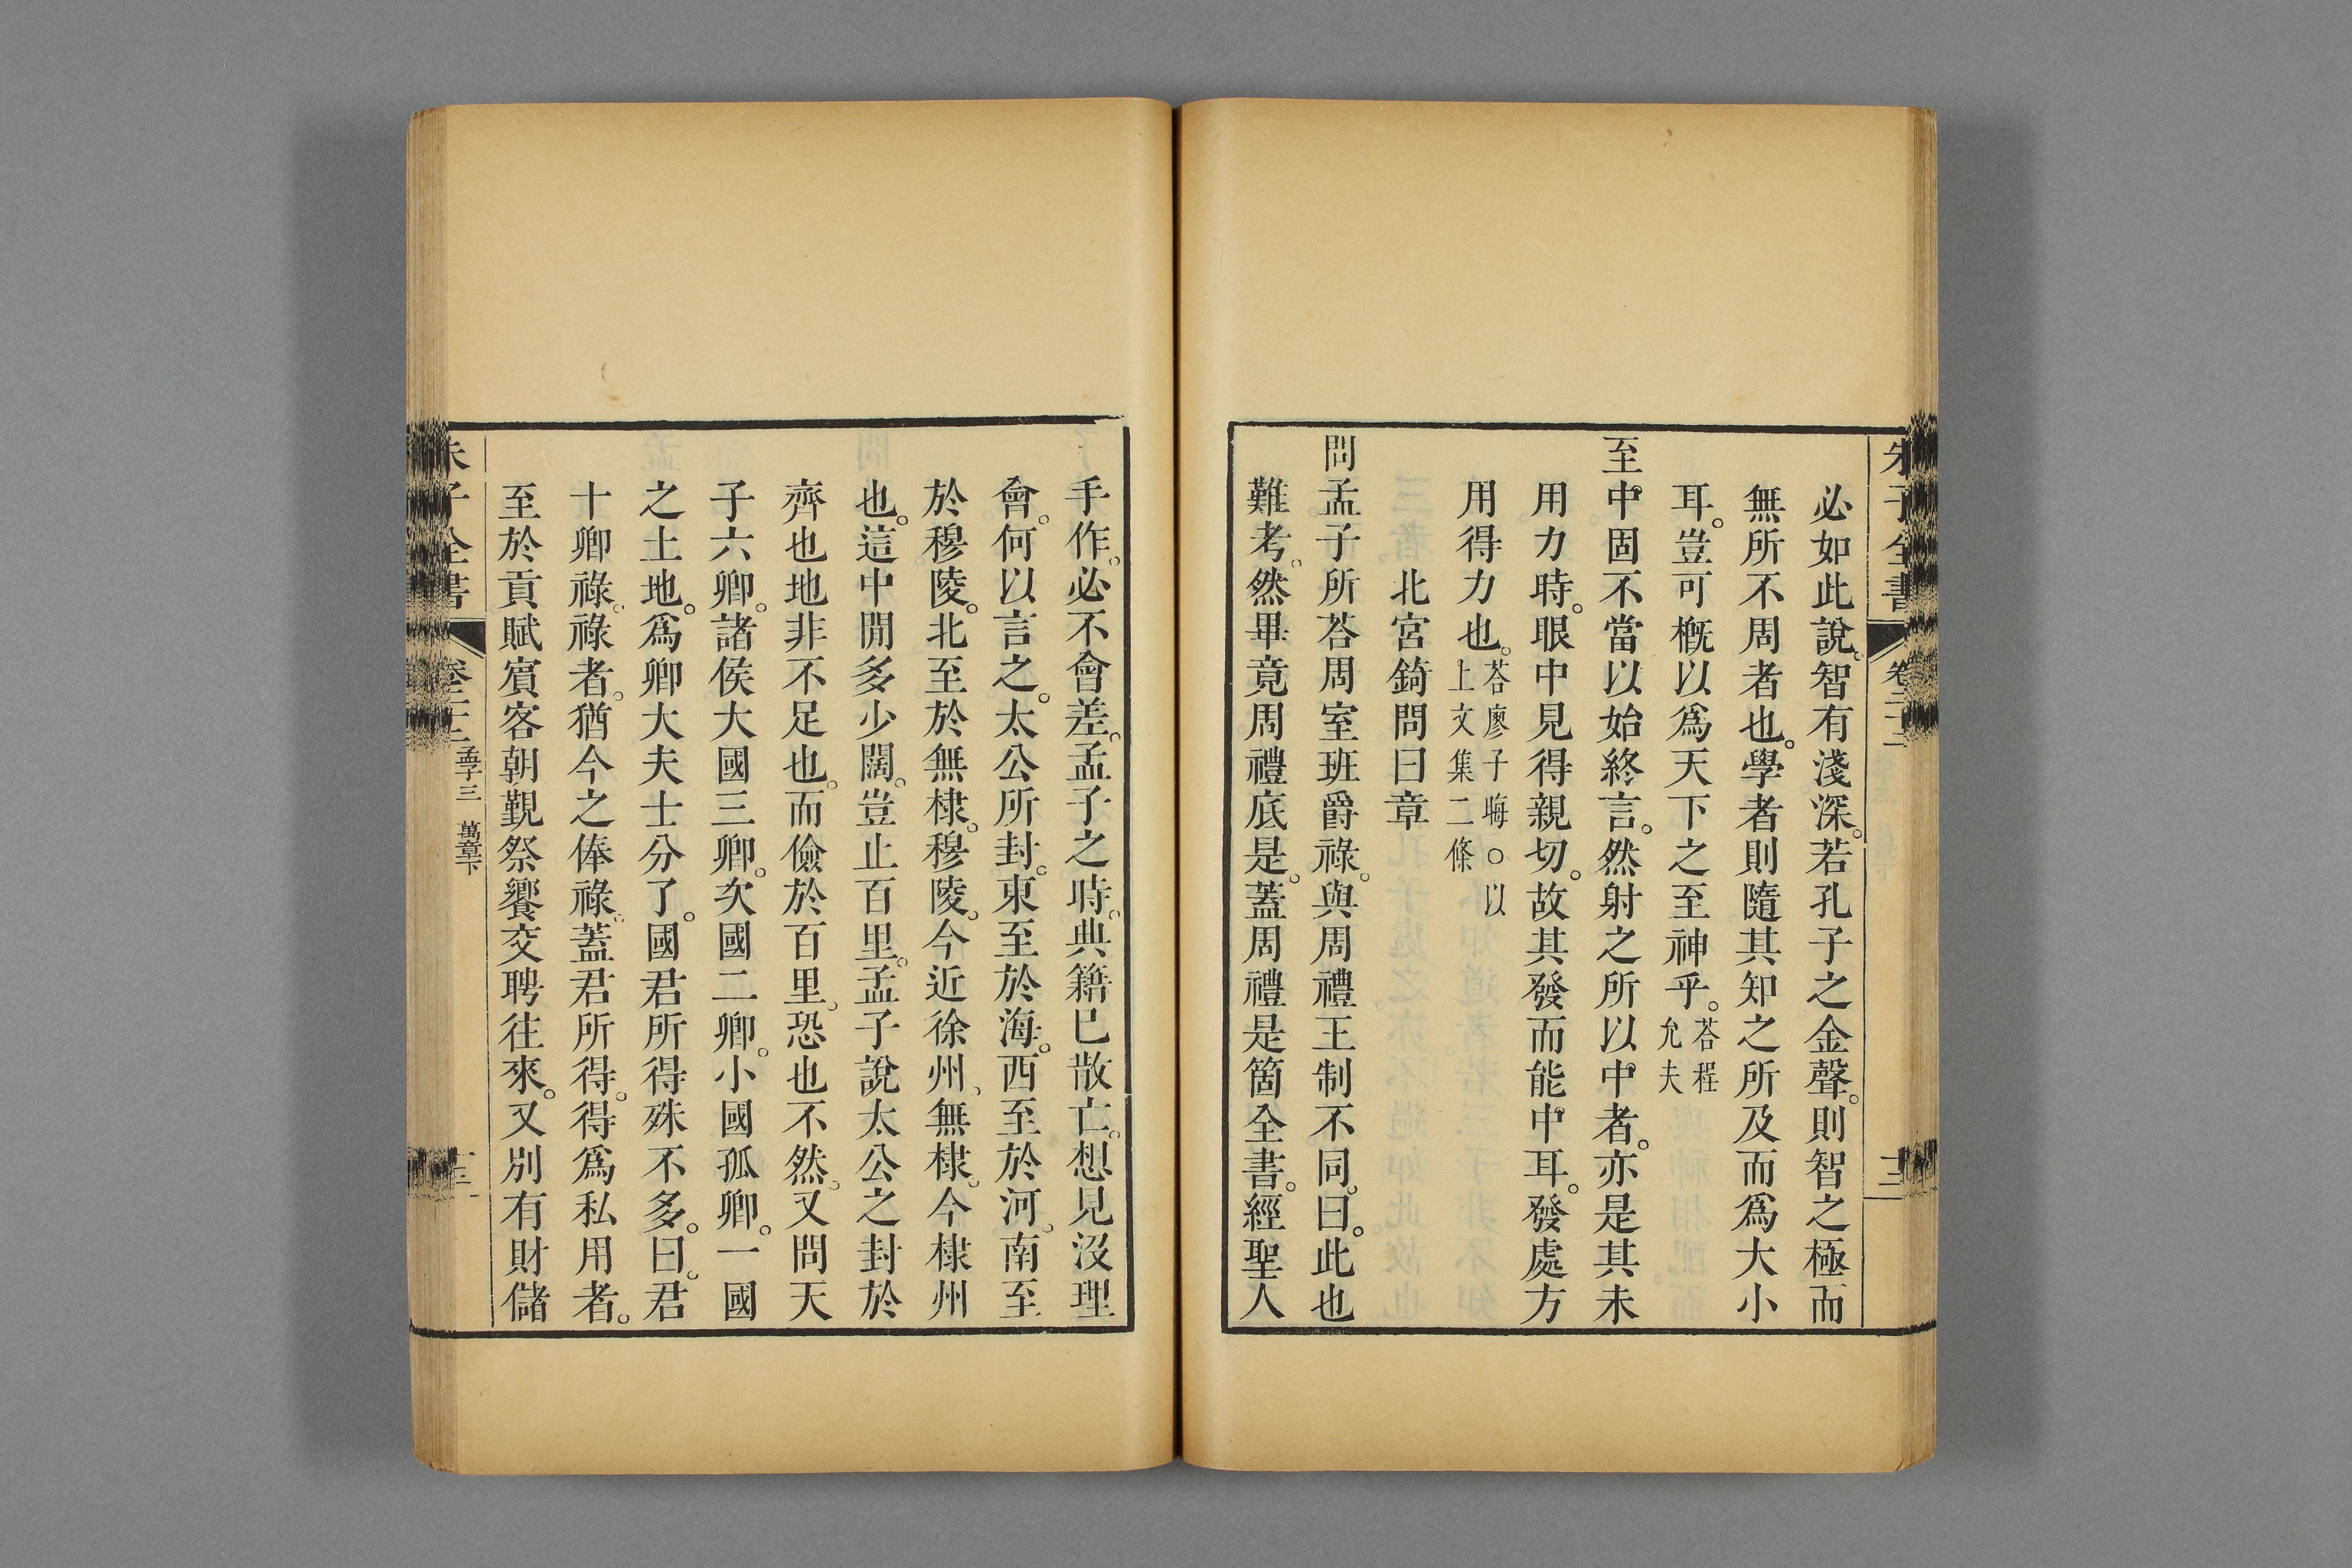 必如此說。智有淺深。若孔子之金聲。則智之極而
無所不周者也。學者則隨其知之所及而爲大小
耳。豈可槪以爲天下之至神乎。荅程允夫
至中固不當以始終言。然射之所以中者。亦是其未
用力時。眼中見得親切。故其發而能中耳。發處方
用得力也。荅廖子晦○以上文集二條
北宮錡問曰章
問孟子所荅周室班爵祿。與周禮王制不同。曰。此也
難考。然畢竟周禮底是。蓋周禮是箇全書。經聖人
手作。必不會差。孟子之時。典籍已散亡。想見沒理
會。何以言之。太公所封。東至於海。西至於河。南至
於穆陵。北至於無棣。穆陵。今近徐州、無棣。今棣州
也。這中閒多少闊。豈止百里。孟子說太公之封於
齊也地非不足也。而儉於百里。恐也不然。又問天
子六卿。諸侯大國三卿。次國二卿。小國孤卿。一國
之土地。爲卿大夫士分了。國君所得殊不多。曰。君
十卿祿。祿者。猶今之俸祿。蓋君所得。得爲私用者。
至於貢賦賓客朝覲祭饗交聘往來。又別有財儲
朱子全書 孟子三 萬章下